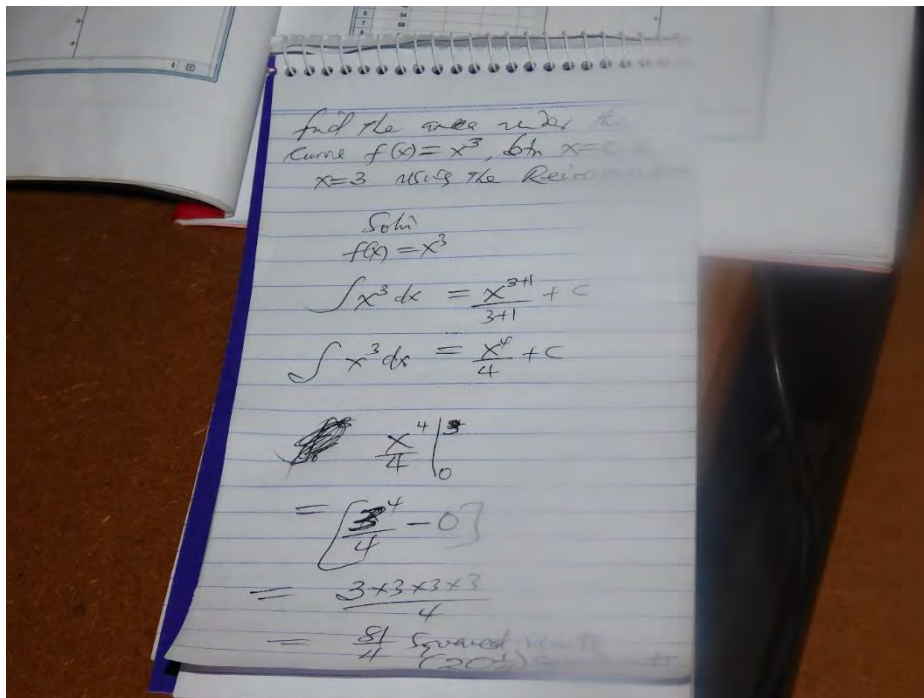 find the area under the
curve f(x) = x³, btn x=
x=3 using the
Soln
f(x) = x³
∫ x³ dx = x³⁺¹/3+1 + C
∫ x³ dx = x⁴/4 + C
x⁴/4 |³₀
= [3⁴/4 - 0]
= 3×3×3×3/4
= 81/4 Squared units